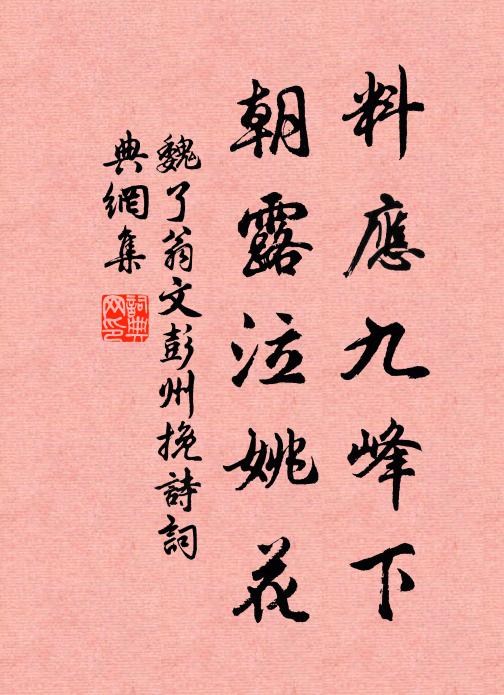 料應九峰下
朝露泣姚花
魏了翁文彭州挽詩詞
典網集
詞典網印